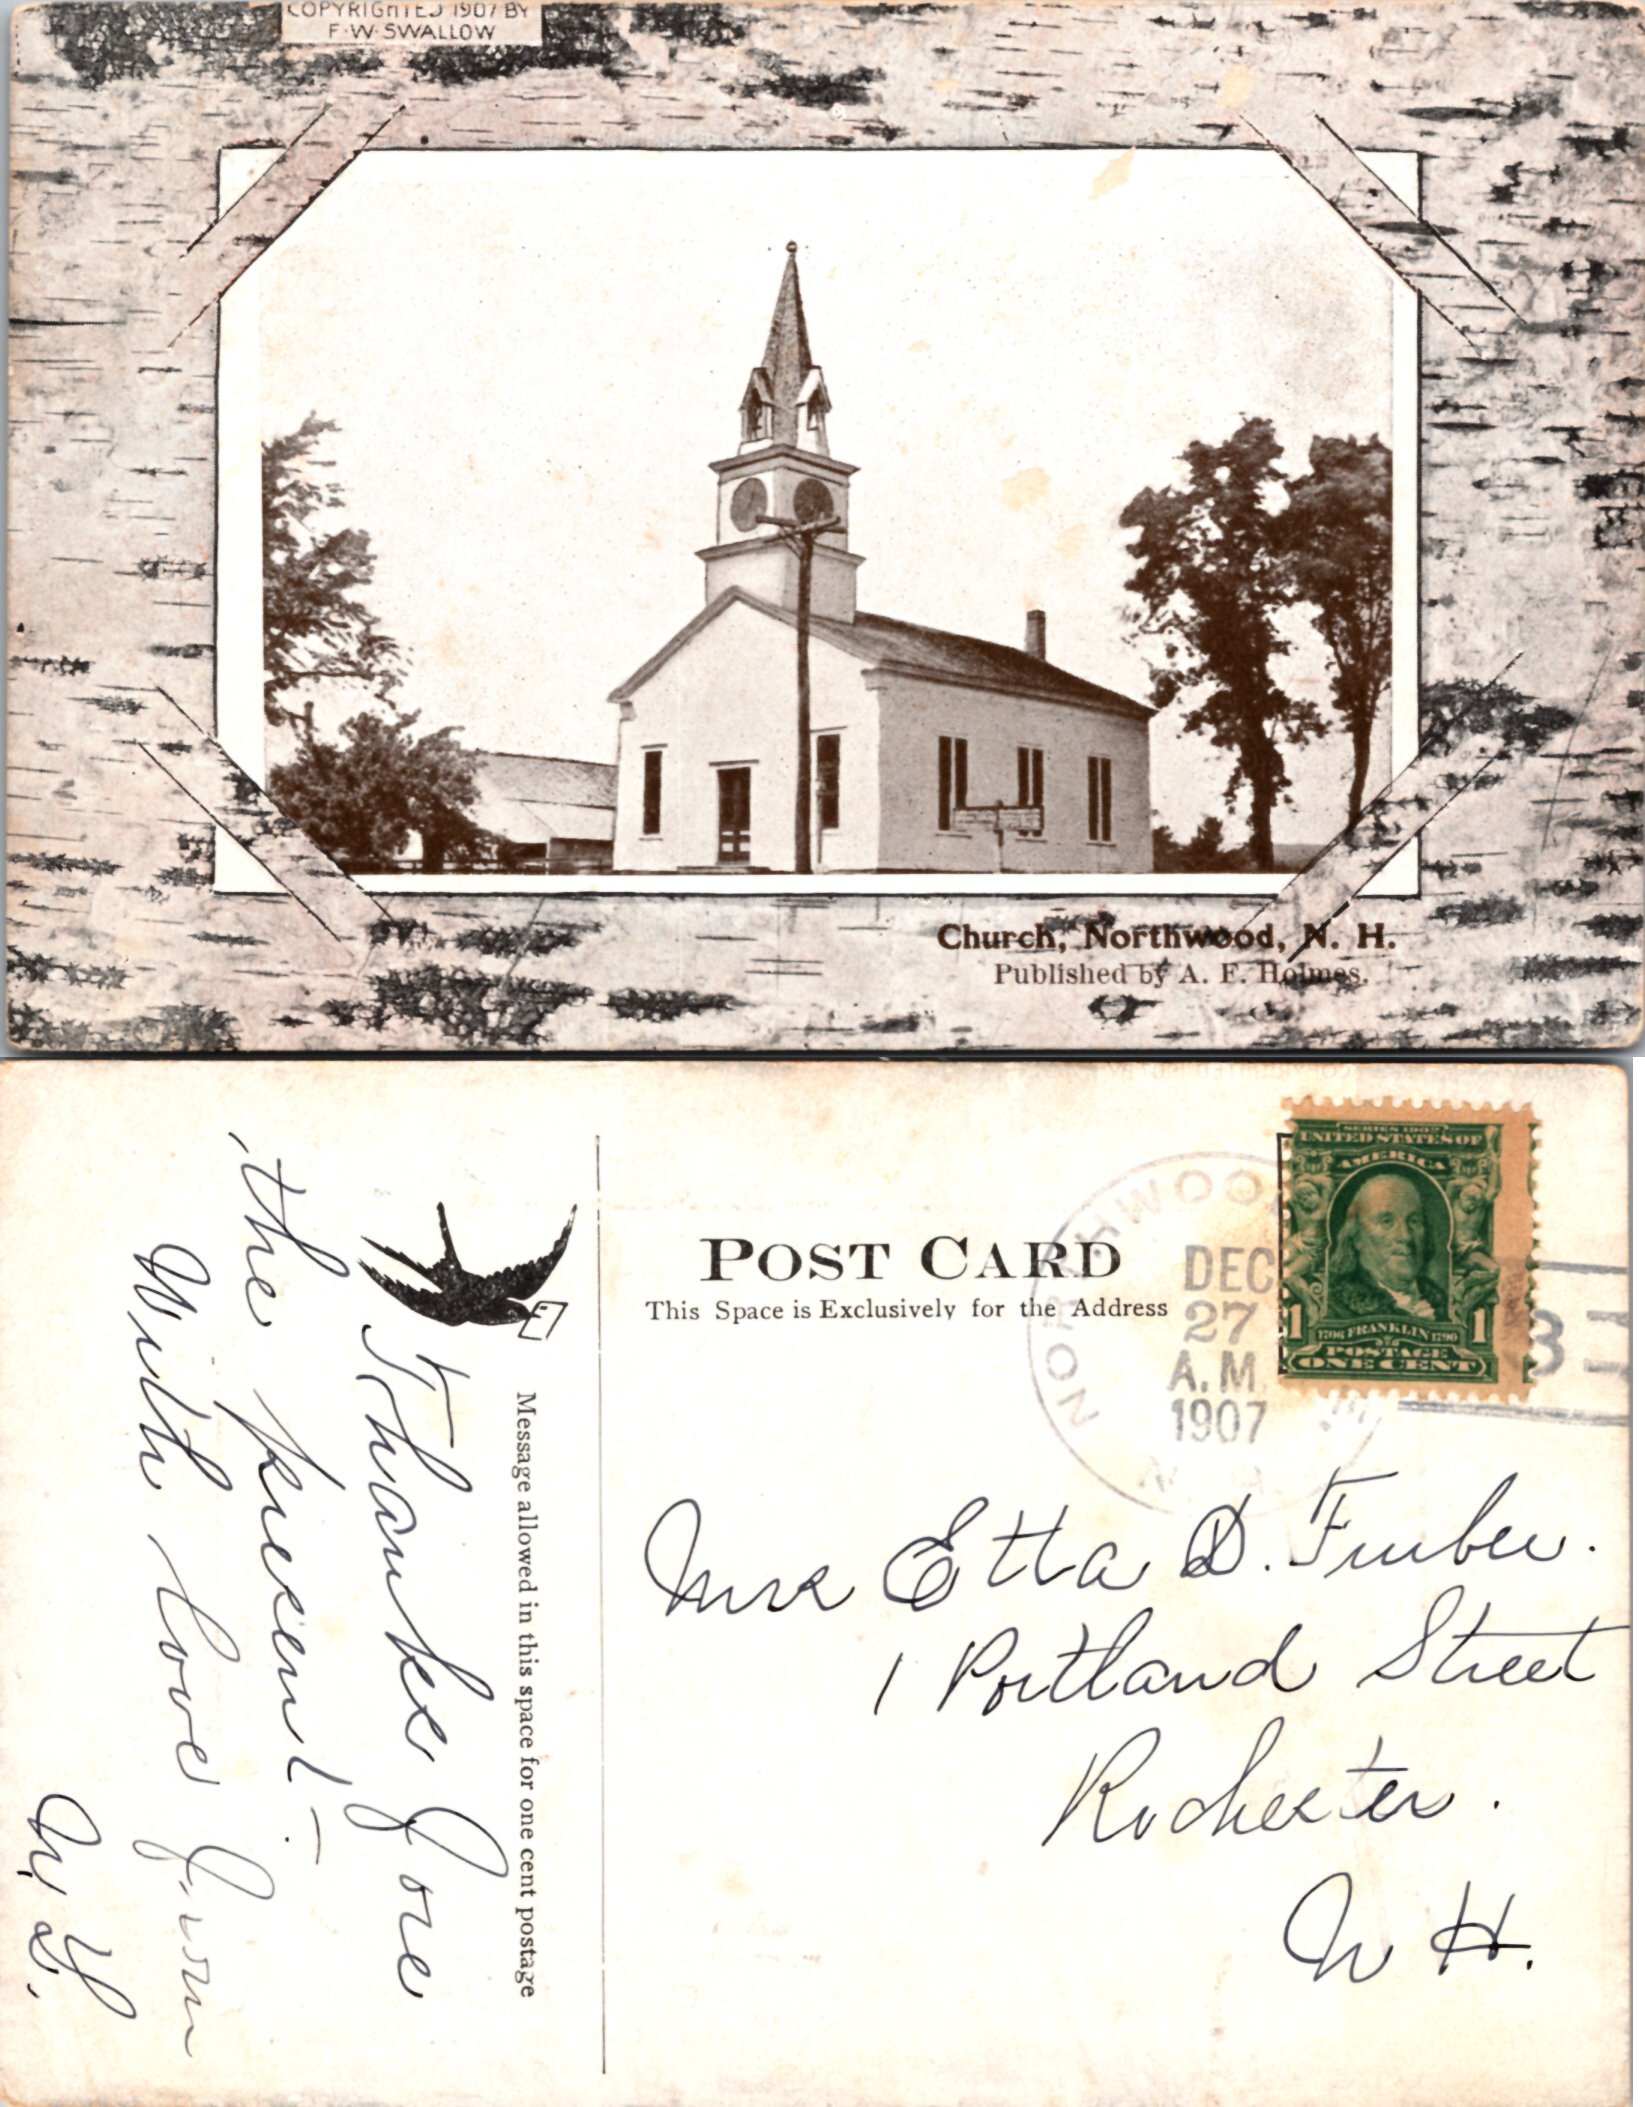 COPYRIGHTED 1907 BY
F·W·SWALLOW
Church, Northwood, N. H.
Published by A. F. Holmes.
POST CARD
This Space is Exclusively for the Address
NORTHWOOD
DEC
27
A.M.
1907
SERIES 1902
UNITED STATES OF
AMERICA
1 1
1706 FRANKLIN 1790
POSTAGE
ONE CENT
3
Message allowed in this space for one cent postage
Thanks for
the present -
With love from
Mrs Etta D. Furber.
1 Portland Street
Rochester.
N H.